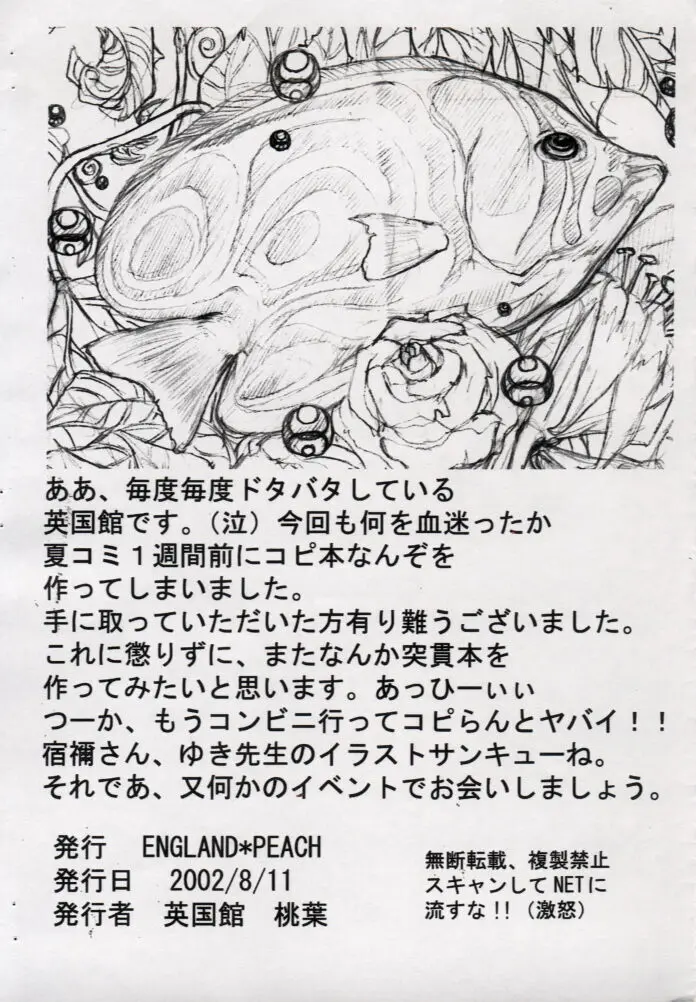 ああ、毎度毎度ドタバタしている
英国館です。（泣）今回も何を血迷ったか
夏コミ１週間前にコピ本なんぞを
作ってしまいました。
手に取っていただいた方有り難うございました。
これに懲りずに、またなんか突貫本を
作ってみたいと思います。あっひーぃぃ
つーか、もうコンビニ行ってコピらんとヤバイ！！
宿禰さん、ゆき先生のイラストサンキューね。
それであ、又何かのイベントでお会いしましょう。
発行　ENGLAND*PEACH
発行日　2002/8/11
発行者　英国館　桃葉
無断転載、複製禁止
スキャンしてNETに
流すな!!（激怒）